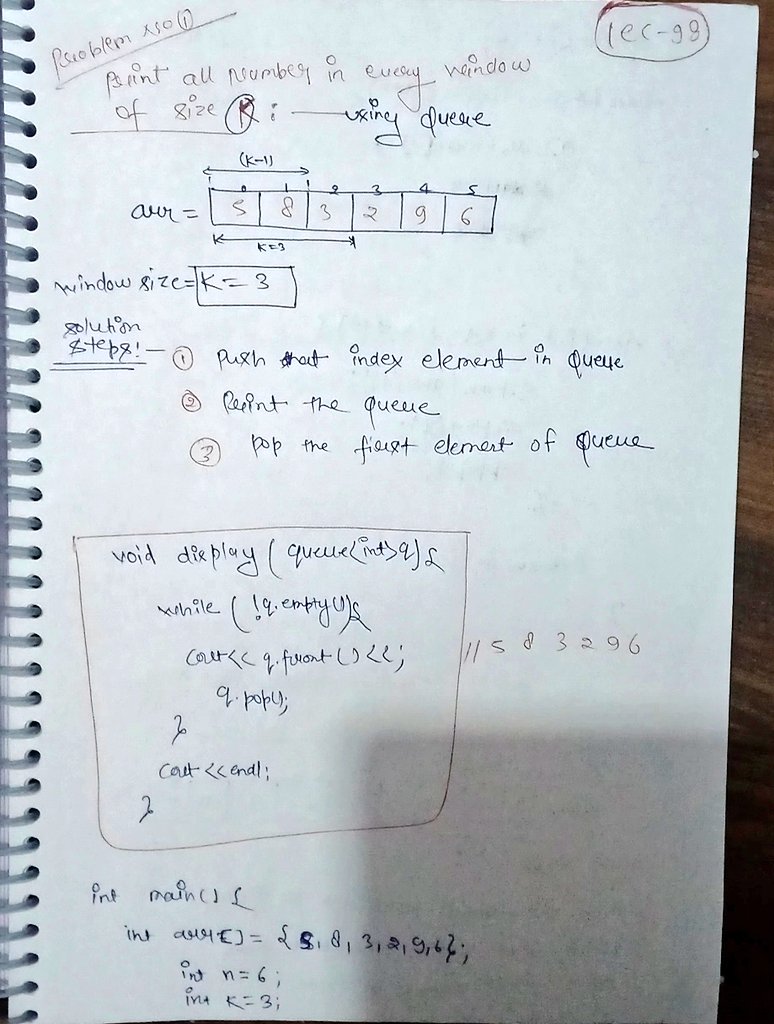 lec-98
Problem No ①
Print all number in every window
of size K : — using Queue
(K-1)
0 1 2 3 4 5
arr = 5 8 3 2 9 6
K=3
window size = K = 3
solution
steps:- ① Push that index element in Queue
② Print the Queue
③ Pop the first element of Queue
void display ( queue<int>q){
while ( !q.empty()){
cout<< q.front () <<;
q.pop();
}
cout <<endl;
}
// 5 8 3 2 9 6
int main() {
int arr[] = { 5, 8, 3, 2, 9, 6};
int n = 6;
int K = 3;